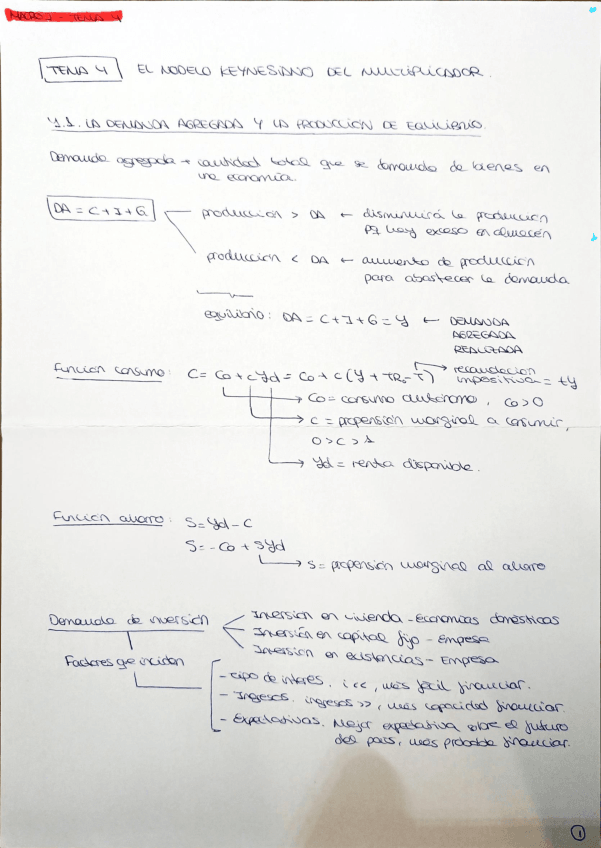 MACRO I - TEMA 4
TEMA 4 EL MODELO KEYNESIANO DEL MULTIPLICADOR.
4.1. LA DEMANDA AGREGADA Y LA PRODUCCIÓN DE EQUILIBRIO.
Demanda agregada → cantidad total que se demanda de bienes en
una economía.
DA = C + I + G
producción > DA ← disminuirá la producción
pq hay exceso en almacén
producción < DA ← aumento de producción
para abastecer la demanda
equilibrio: DA = C + I + G = Y ← DEMANDA
AGREGADA
REALIZADA
Función consumo: C = Co + cYd = Co + c(Y + TRo - T) → recaudación
impositiva = tY
→ Co = consumo autónomo, Co > 0
→ c = propensión marginal a consumir,
0 > c > 1
→ Yd = renta disponible.
Función ahorro: S = Yd - C
S = -Co + SYd
→ S = propensión marginal al ahorro
Demanda de inversión
Inversión en vivienda - Economías domésticas
Inversión en capital fijo - Empresa
Inversión en existencias - Empresa
Factores que inciden
- Tipo de interés. i <<, más fácil financiar.
- Ingresos. ingresos >>, más capacidad financiar.
- Expectativas. Mejor expectativa sobre el futuro
del país, más probable financiar.
1